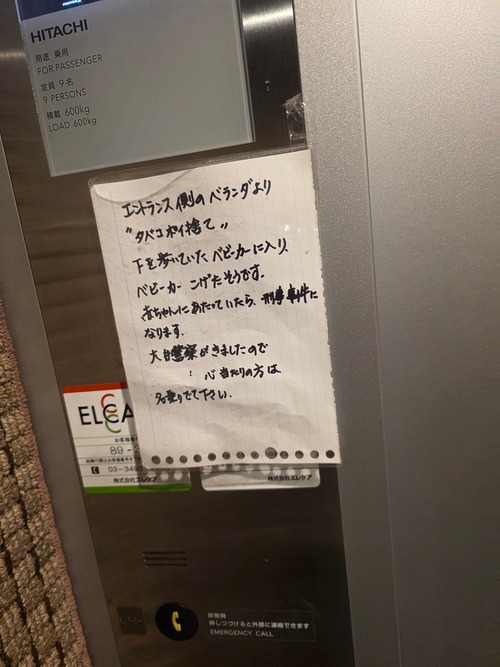 HITACHI
用途 乗用
FOR PASSENGER
定員 9名
9 PERSONS
積載 600kg
LOAD 600kg
エントランス側のベランダより
"タバコポイ捨て"
下を歩いていたベビーカーに入り、
ベビーカー こげたそうです。
赤ちゃんにあたっていたら、刑事事件に
なります。
警察がきましたので
心当たりの方は
名乗りでて下さい。
ELC
お客様番
89-
03-349
株式会社エレケア
株式会社エレケア
非常時
押しつづけると外部に連絡できます
EMERGENCY CALL